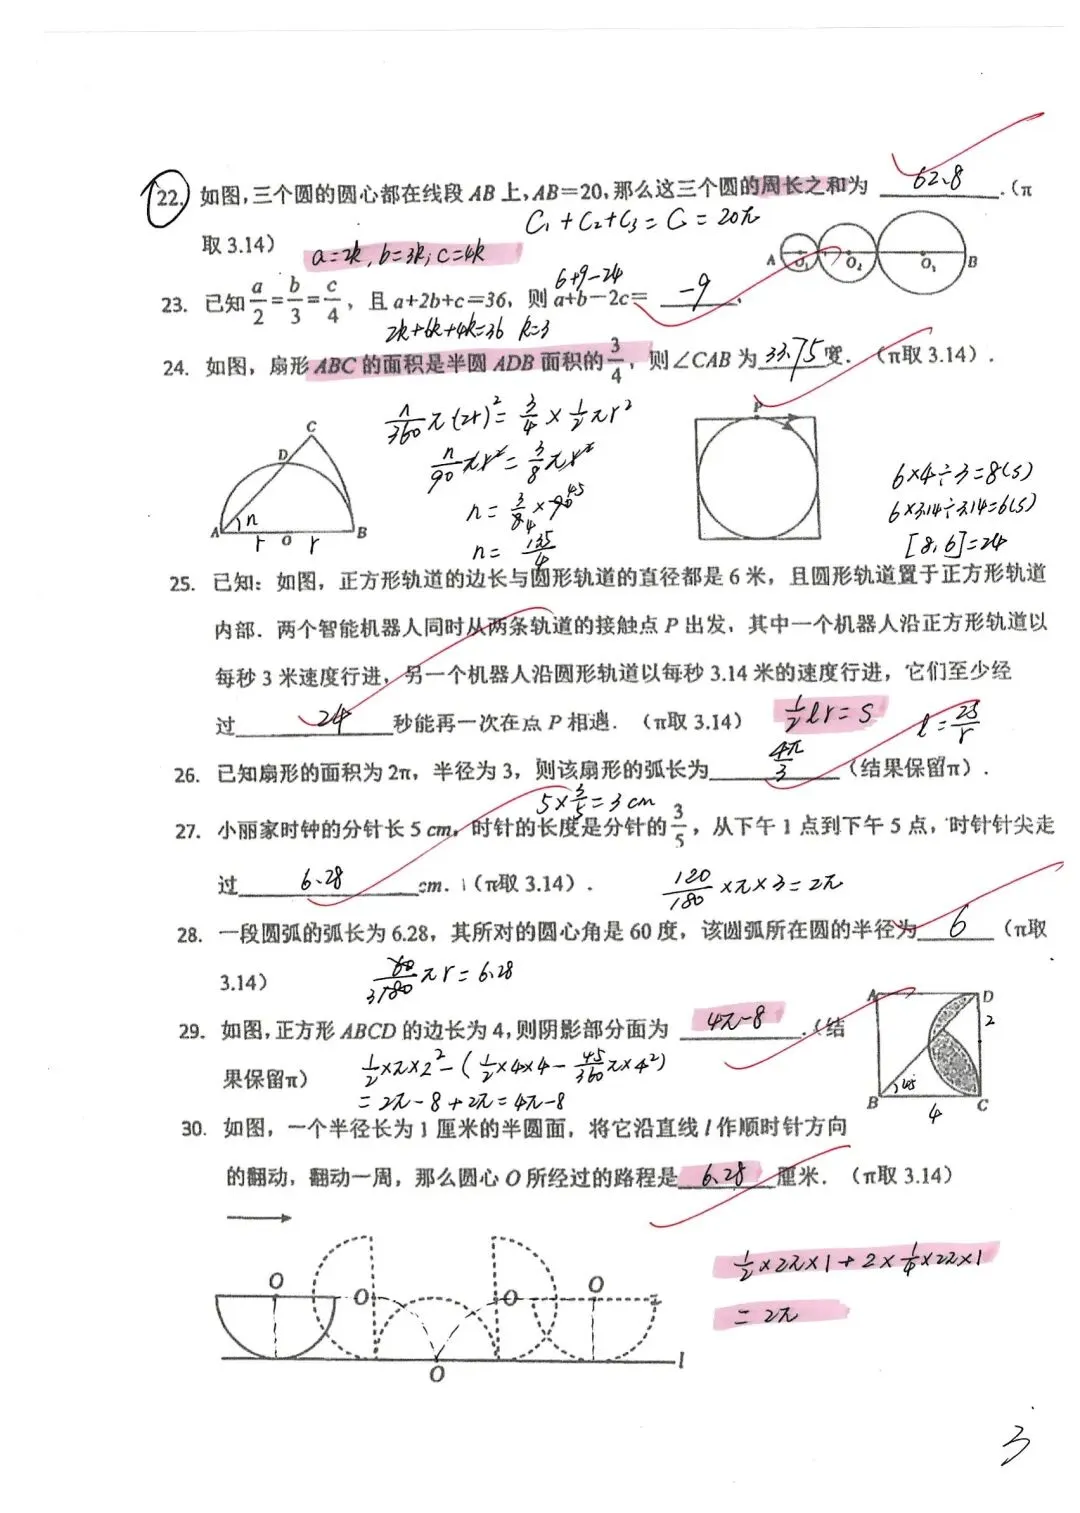 22. 如图,三个圆的圆心都在线段 AB 上,AB=20,那么这三个圆的周长之和为 62.8 .(π
取 3.14)
C₁+C₂+C₃=C=20π
A O₁ O₂ O₃ B
a=2k, b=3k, c=4k
6+9-24
23. 已知 a/2=b/3=c/4, 且 a+2b+c=36, 则 a+b-2c= -9 .
2k+6k+4k=36 k=3
24. 如图, 扇形 ABC 的面积是半圆 ADB 面积的 3/4, 则∠CAB 为 33.75 度. (π取 3.14).
n/360 π(2r)²=3/4×1/2πr²
n/90 πr²=3/8 πr²
n=3/8×90 45 4
n=135/4
A D C n r O r B
P
6×4÷3=8(s)
6×3.14÷3.14=6(s)
[8,6]=24
25. 已知: 如图, 正方形轨道的边长与圆形轨道的直径都是 6 米, 且圆形轨道置于正方形轨道
内部. 两个智能机器人同时从两条轨道的接触点 P 出发, 其中一个机器人沿正方形轨道以
每秒 3 米速度行进, 另一个机器人沿圆形轨道以每秒 3.14 米的速度行进, 它们至少经
过 24 秒能再一次在点 P 相遇. (π取 3.14)
1/2 lr=S l=2S/r
26. 已知扇形的面积为 2π, 半径为 3, 则该扇形的弧长为 4π/3 (结果保留π).
5×3/5=3cm
27. 小丽家时钟的分针长 5 cm, 时针的长度是分针的 3/5, 从下午 1 点到下午 5 点, 时针针尖走
过 6.28 cm. (π取 3.14).
120/180×π×3=2π
28. 一段圆弧的弧长为 6.28, 其所对的圆心角是 60 度, 该圆弧所在圆的半径为 6 (π取
3.14)
60/3180 πr=6.28
29. 如图,正方形 ABCD 的边长为 4,则阴影部分面为 4π-8 .(结
果保留π)
1/2×π×2²-(1/2×4×4-45/360π×4²)
=2π-8+2π=4π-8
A D 2 B 45 4 C
30. 如图, 一个半径长为 1 厘米的半圆面, 将它沿直线 l 作顺时针方向
的翻动, 翻动一周, 那么圆心 O 所经过的路程是 6.28 厘米. (π取 3.14)
1/2×2π×1+2×1/4×2π×1
=2π
O O O O O l
3